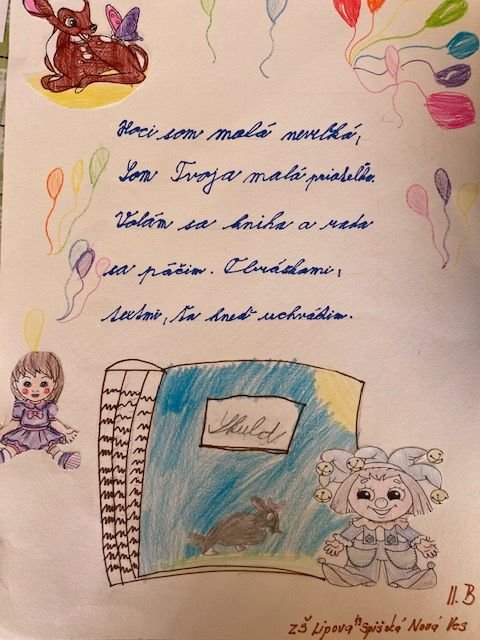 Hoci som malá neveľká,
Som Tvoja malá priateľka.
Volám sa kniha a rada
sa páčim. Obrázkami,
textmi, ťa hneď uchvátim.
II. B
ZŠ Lipová 13 Spišská Nová Ves